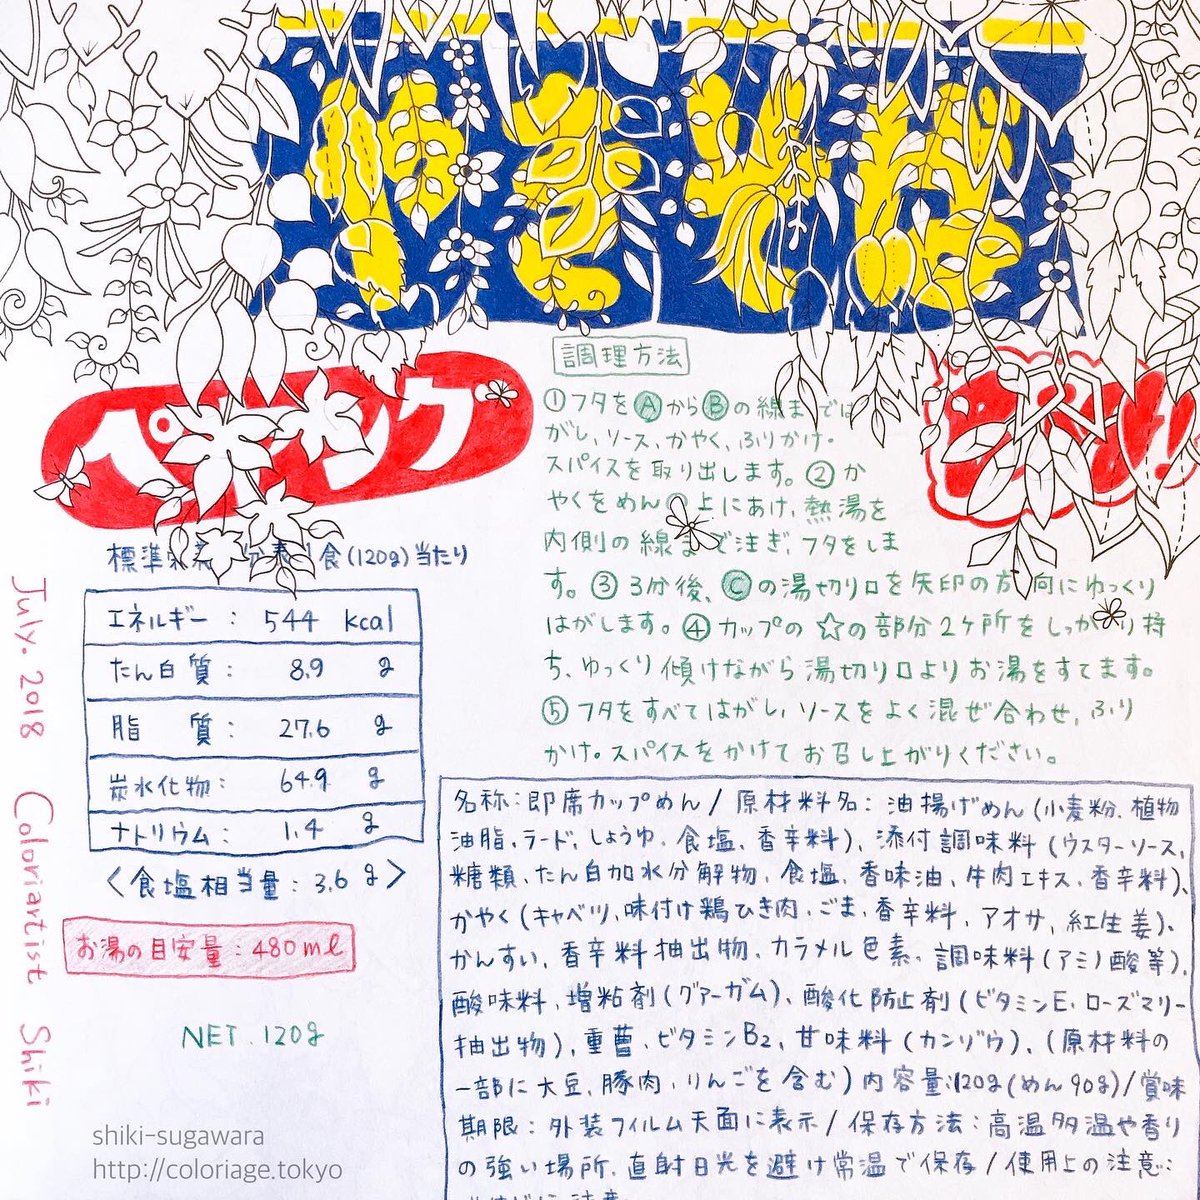 ペヤング
調理方法
①フタをⒶからⒷの線まで
がし、ソース、かやく、ふりかけ・
スパイスを取り出します。②か
やくをめん 上にあけ、熱湯を
内側の線まで注ぎ、フタをしま
す。③3分後、Ⓒの湯切り口を矢印の方向にゆっくり
はがします。④カップの☆の部分2ケ所をしっかり持
ち、ゆっくり傾けながら湯切り口よりお湯をすてます。
⑤フタをすべてはがし、ソースをよく混ぜ合わせ、ふり
かけ・スパイスをかけてお召し上がりください。
標準 食(120g)当たり
エネルギー: 544 kcal
たん白質: 8.9 g
脂 質: 27.6 g
炭水化物: 64.9 g
ナトリウム: 1.4 g
<食塩相当量:3.6g>
お湯の目安量:480ml
NET.120g
July. 2018 Coloriartist Shiki
名称:即席カップめん/原材料名:油揚げめん(小麦粉、植物
油脂、ラード、しょうゆ、食塩、香辛料)、添付調味料(ウスターソース、
糖類、たん白加水分解物、食塩、香味油、牛肉エキス、香辛料)、
かやく(キャベツ、味付け鶏ひき肉、ごま、香辛料、アオサ、紅生姜)、
かんすい、香辛料抽出物、カラメル色素、調味料(アミノ酸等)、
酸味料、増粘剤(グァーガム)、酸化防止剤(ビタミンE、ローズマリー
抽出物)、重曹、ビタミンB2、甘味料(カンゾウ)、(原材料の
一部に大豆、豚肉、りんごを含む)内容量:120g(めん90g)/賞味
期限:外装フィルム天面に表示/保存方法:高温多温や香り
の強い場所、直射日光を避け常温で保存/使用上の注意:
shiki-sugawara
http://coloriage.tokyo